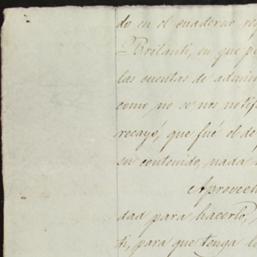 do en el cuaderno re
Brilanti, en que p
las cuentas de admin
como no se nos notifi
recayó, que fué el de
su contenido, nada
Aprovech
dad para hacerlo,
ti, para que tenga l